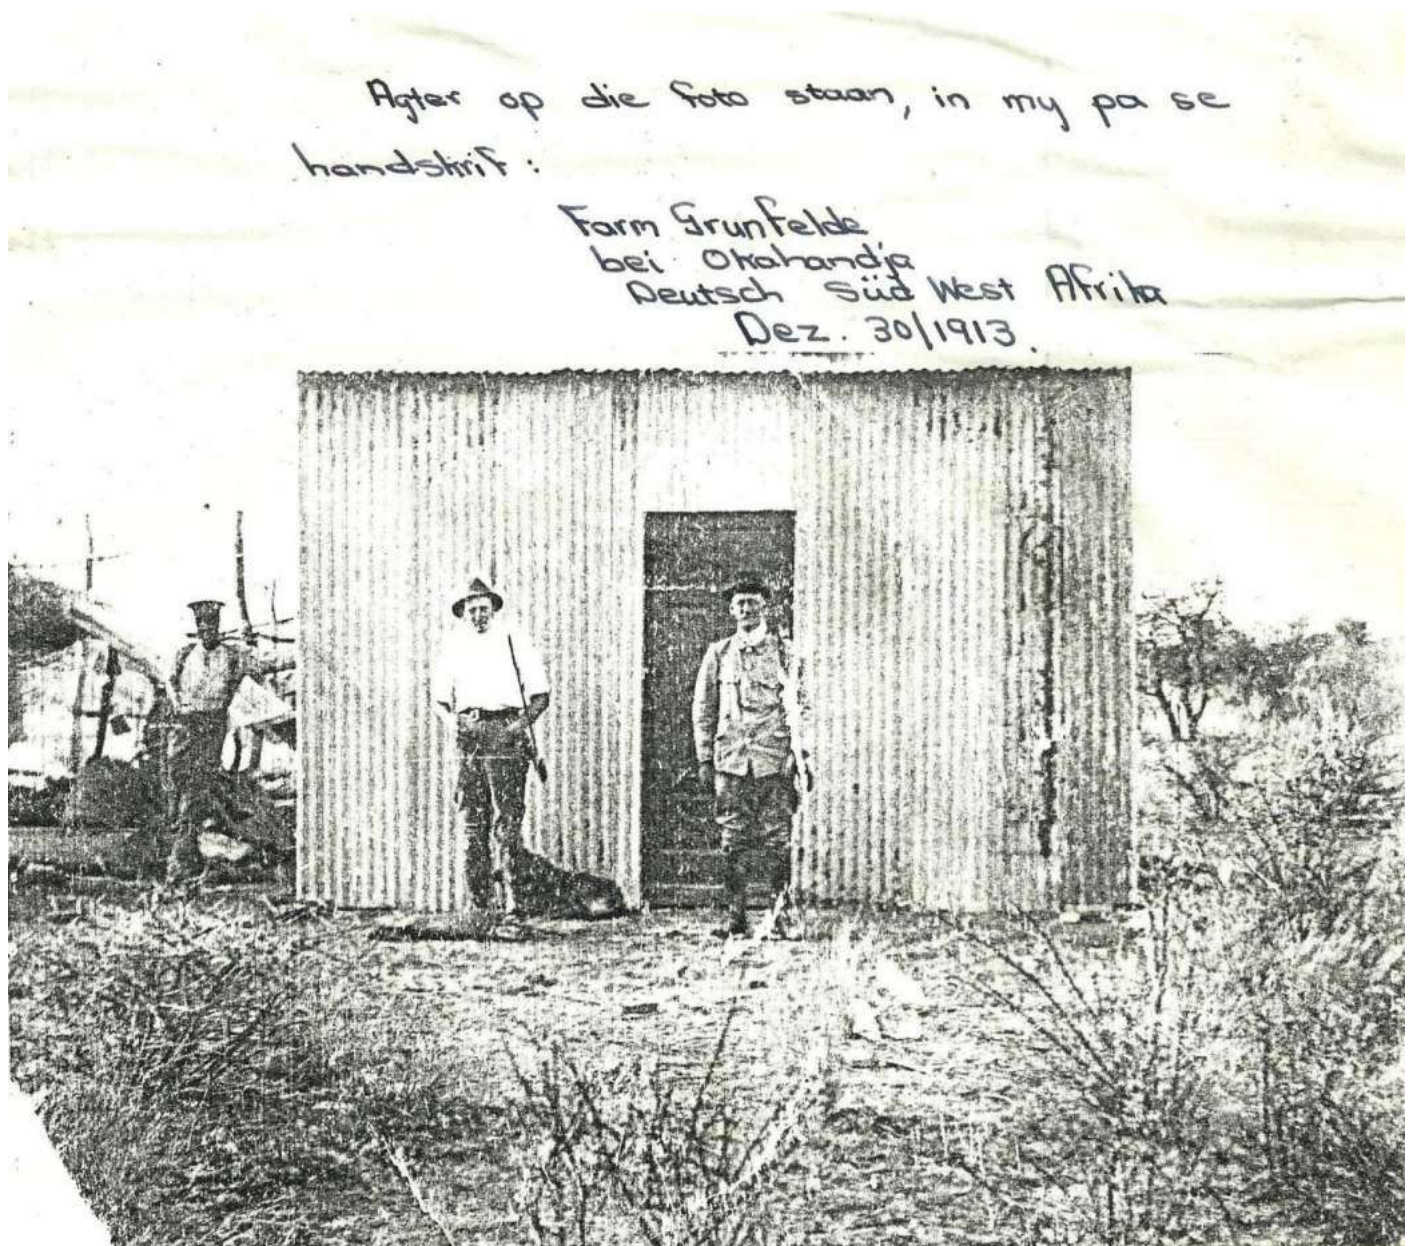 Agter op die foto staan, in my pa se
handskrif :
Farm Grunfelde
bei Okahandja
Deutsch Süd West Afrika
Dez. 30/1913.